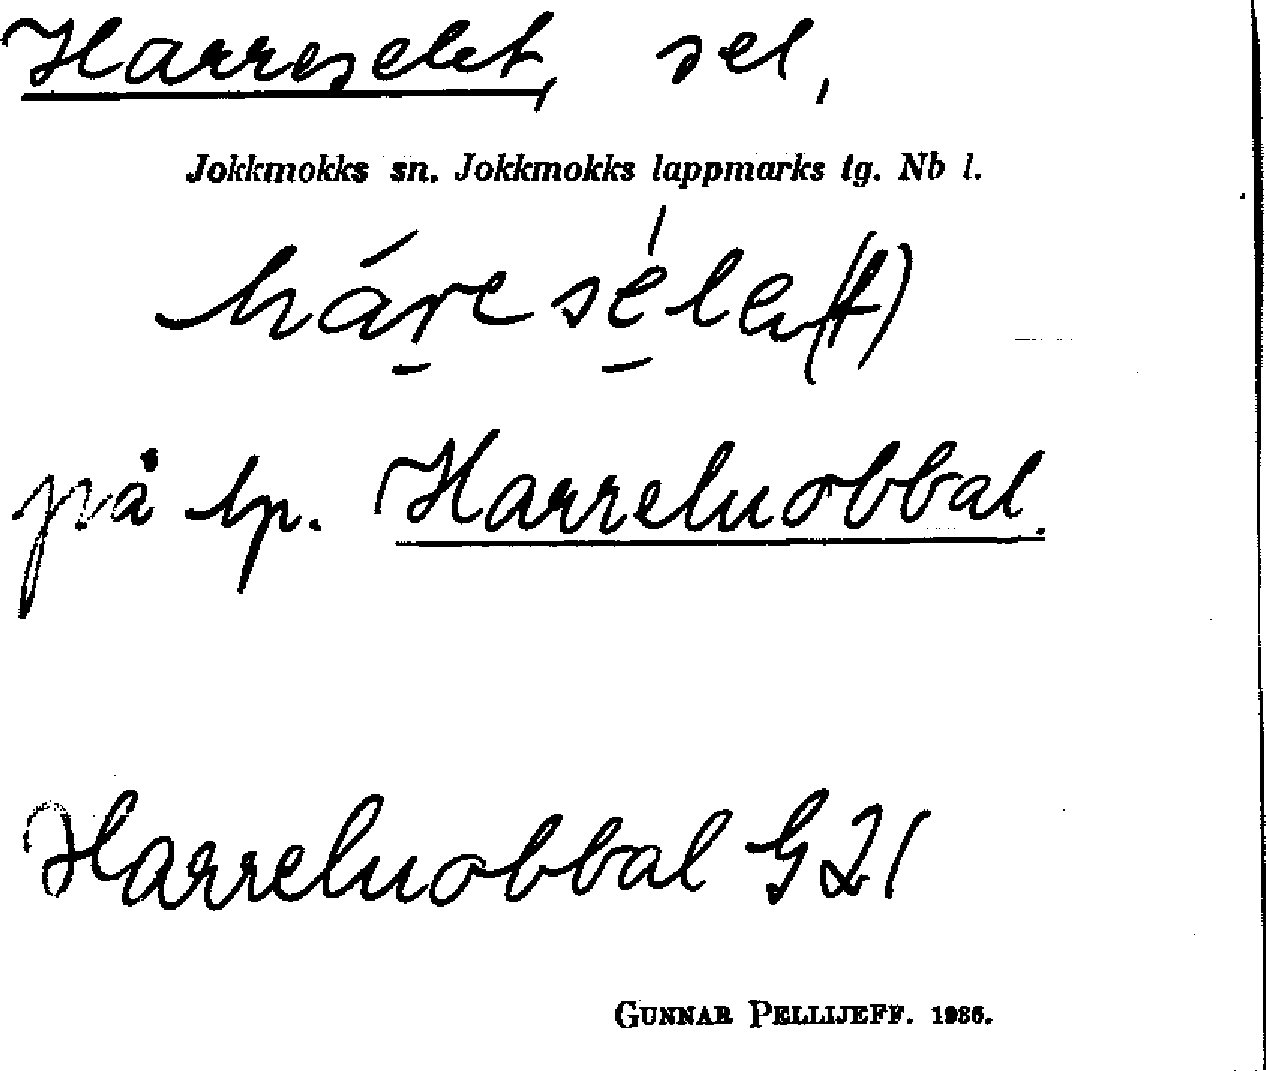 Harreselet, sel,
Jokkmokks sn. Jokkmokks lappmarks tg. Nb l.
hár̲esé̲la(t)
på lp. Harreluobbal.
Harreluobbal G 21
GUNNAR PELLIJEFF. 1986.